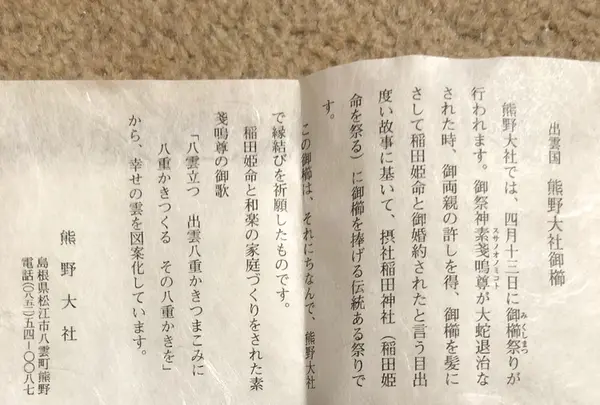 出雲国 熊野大社御櫛
熊野大社では、四月十三日に御櫛祭りが
行われます。御祭神素戔嗚尊が大蛇退治な
された時、御両親の許しを得、御櫛を髪に
さして稲田姫命と御婚約されたと言う目出
度い故事に基いて、摂社稲田神社（稲田姫
命を祭る）に御櫛を捧げる伝統ある祭りで
す。
この御櫛は、それにちなんで、熊野大社
で縁結びを祈願したものです。
稲田姫命と和楽の家庭づくりをされた素
戔嗚尊の御歌
「八雲立つ 出雲八重かきつまこみに
八重かきつくる その八重かきを」
から、幸せの雲を図案化しています。
熊野大社
島根県松江市八雲町熊野
電話（〇八五二）五四ー〇〇八七
スサノオノミコト
みくしまつ